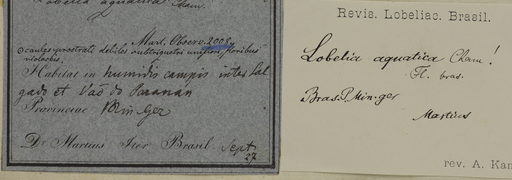 Lobelia aquatica Cham.
Mart. Observ. 2008.
caules prostrati debiles subtriquetri uniflori, floribus
violaceis.
Habitat in humidis campis inter Sal-
gado et Vao do Paranán
Provinciae Min. Ger
Dr. Martius Iter Brasil. Sept
27
Revis. Lobeliac. Brasil.
Lobelia aquatica Cham!
Fl. bras.
Bras. P. Min-ger
Martius
rev. A. Kan